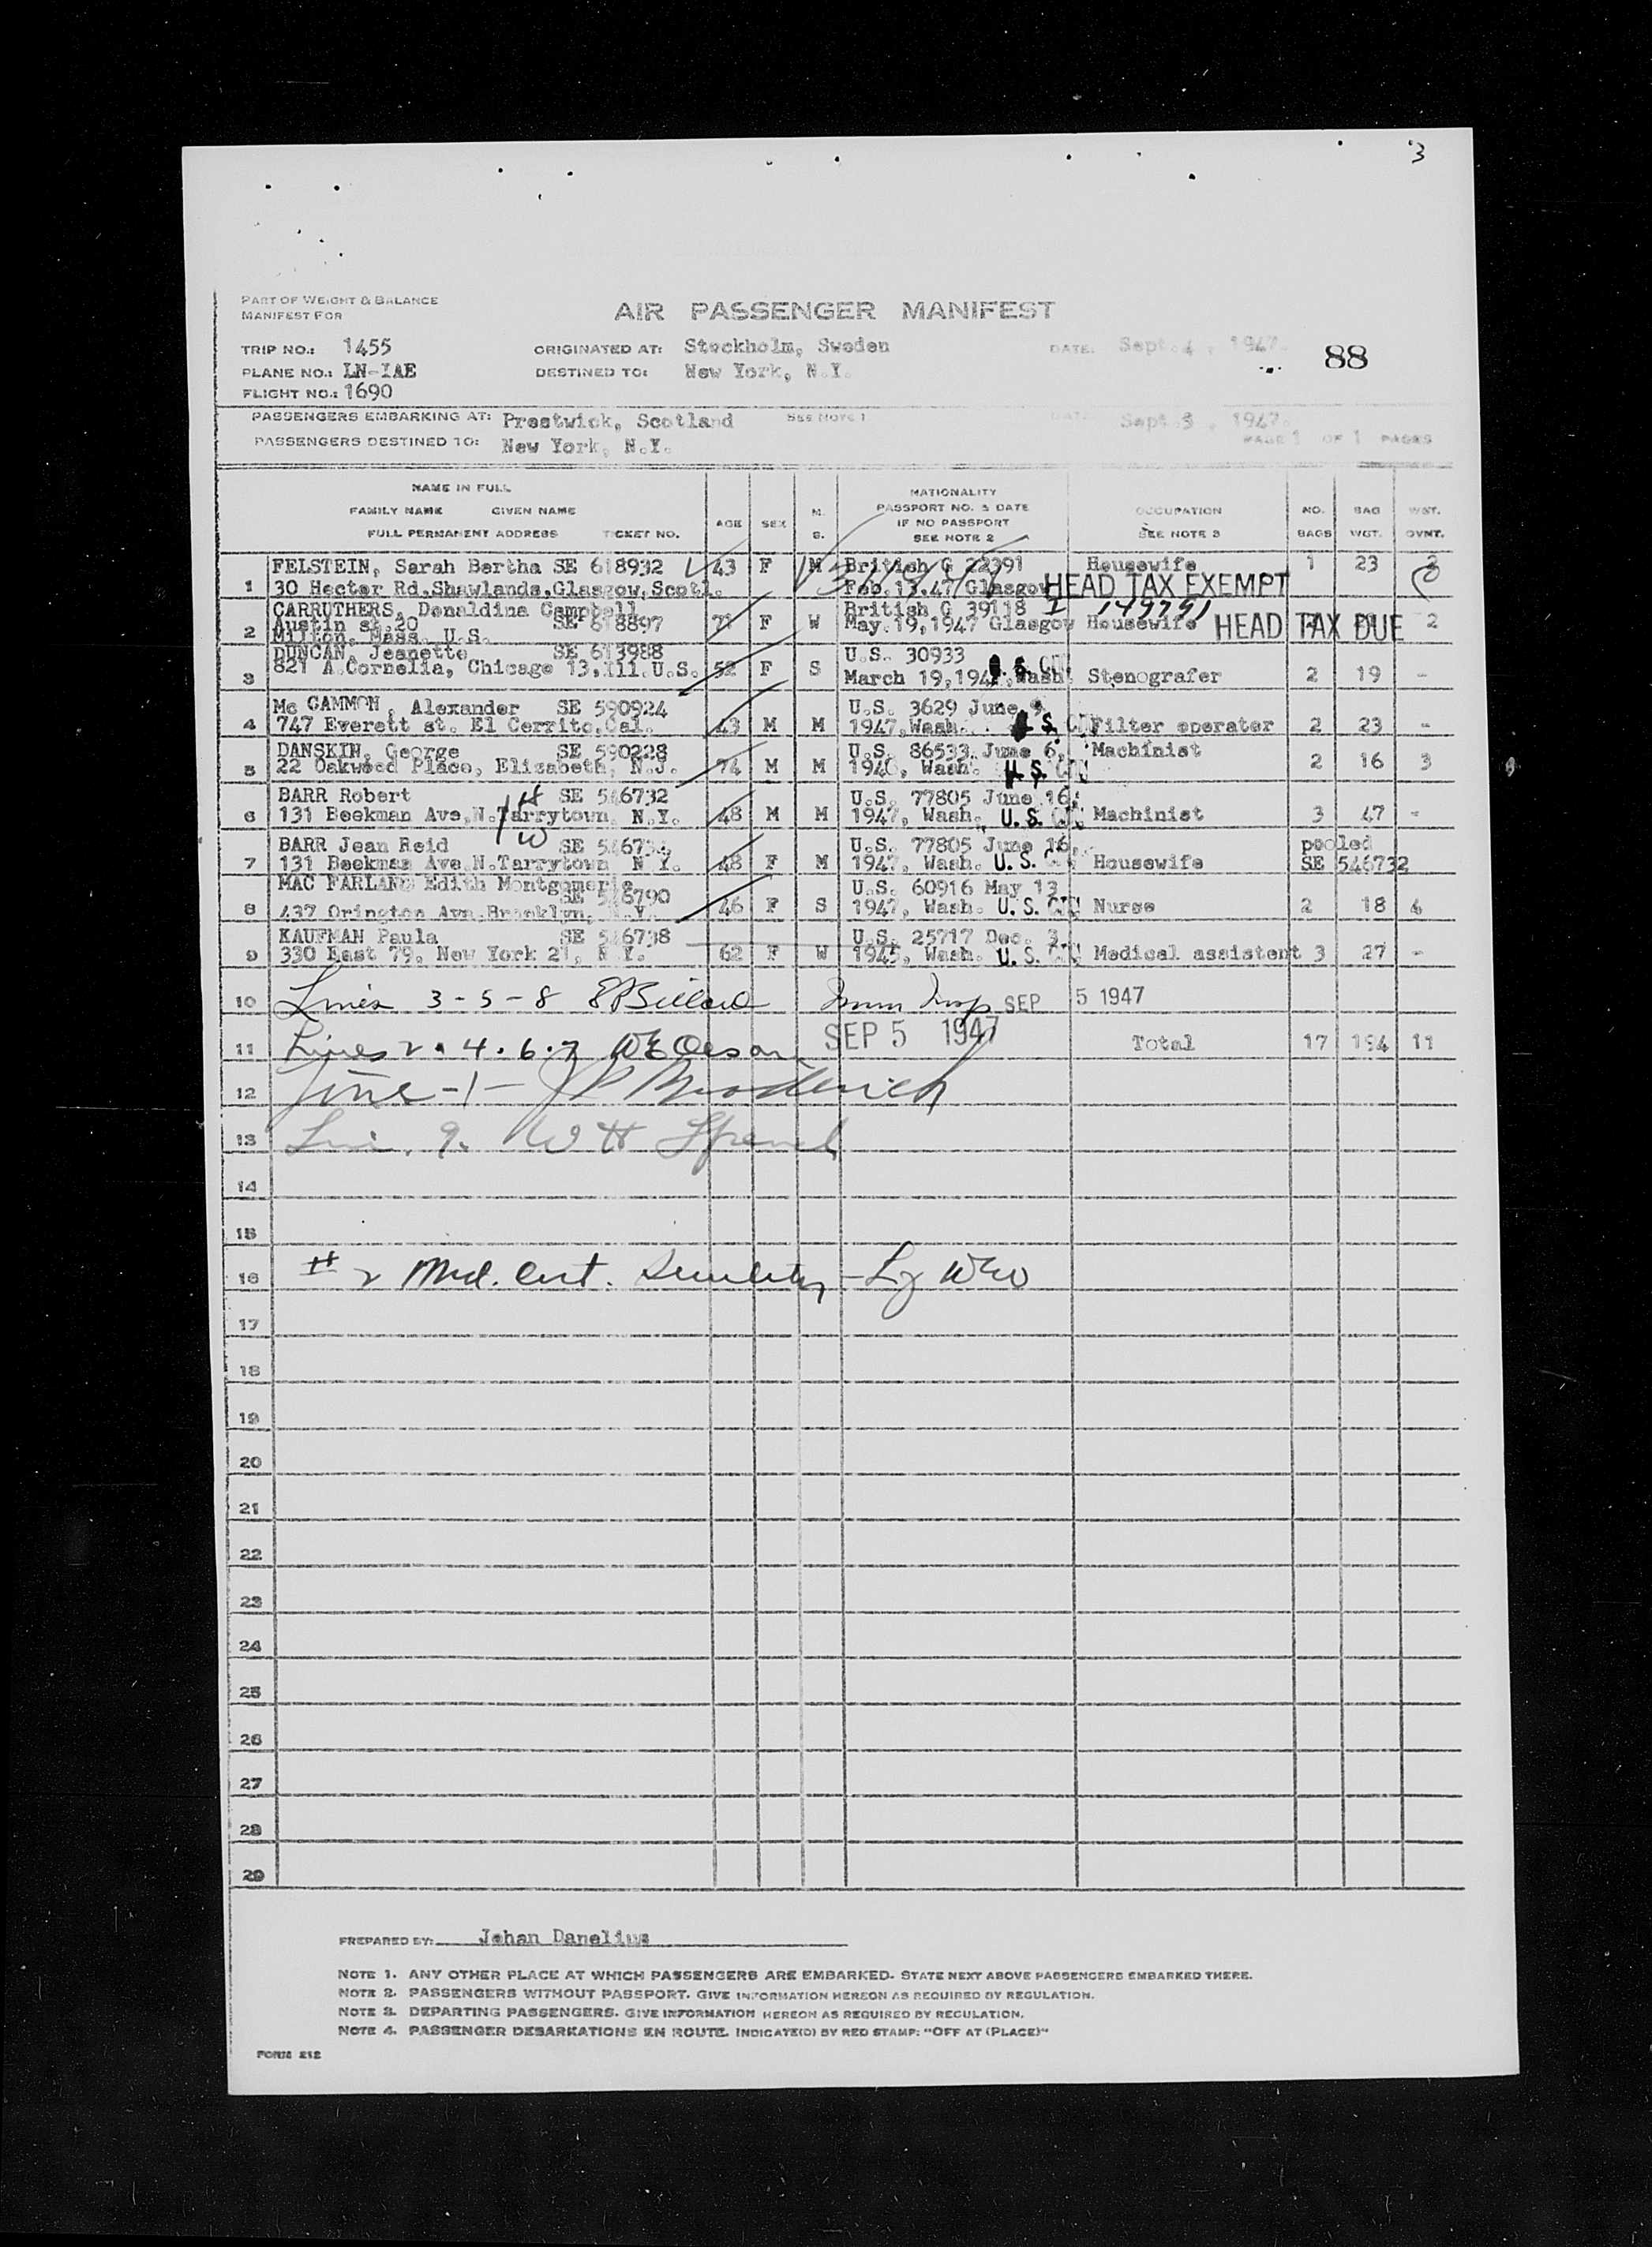 3
PART OF WEIGHT & BALANCE
MANIFEST FOR
AIR PASSENGER MANIFEST
TRIP NO.: 1455 ORIGINATED AT: Stockholm, Sweden DATE: Sept. 4, 1947. 88
PLANE NO.: LN-IAE DESTINED TO: New York, N.Y.
FLIGHT NO.: 1690
PASSENGERS EMBARKING AT: Prestwick, Scotland SEE NOTE 1 DATE: Sept 3, 1947.
PASSENGERS DESTINED TO: New York, N.Y. PAGE 1 OF 1 PAGES
NAME IN FULL
FAMILY NAME GIVEN NAME
FULL PERMANENT ADDRESS TICKET NO. AGE SEX M. S. NATIONALITY PASSPORT NO. & DATE IF NO PASSPORT SEE NOTE 2 OCCUPATION SEE NOTE 3 NO. BAGS BAG WGT. WGT. OVNT.
FELSTEIN, Sarah Bertha SE 618932 43 F M British G 22391 Housewife 1 23 2
1 30 Hector Rd, Shawlands, Glasgow, Scotl. Feb. 13.47 Glasgow HEAD TAX EXEMPT
CARRUTHERS, Donaldina Campbell British G 39118 I 149791
Austin st. 20 SE 618897 71 F W May. 19, 1947 Glasgow Housewife HEAD TAX DUE 2
2 Milton, Mass. U.S.
DUNCAN, Jeanette SE 613988 U.S. 30933
3 821 A. Cornelia, Chicago 13, Ill. U.S. 52 F S March 19, 194 Wash. U.S. CIT Stenografer 2 19 -
Mc CAMMON, Alexander SE 590924 U.S. 3629 June 9.
4 747 Everett st. El Cerrito, Cal. 43 M M 1947, Wash. U.S. CIT Filter operator 2 23 -
DANSKIN, George SE 590228 U.S. 86533 June 6, Machinist
5 22 Oakwood Place, Elizabeth, N.J. 74 M M 1946, Wash. U.S. CIT 2 16 3
BARR Robert H SE 546732 U.S. 77805 June 16,
6 131 Beekman Ave, N. Tarrytown, N.Y. 48 M M 1947, Wash. U.S. CIT Machinist 3 47 -
BARR Jean Reid W SE 546734 U.S. 77805 June 16, pooled
7 131 Beekman Ave N. Tarrytown N.Y. 48 F M 1947, Wash. U.S. CIT Housewife SE 546732
MAC FARLAND Edith Montgomerie SE 546790 U.S. 60916 May 13
8 437 Orington Ave. Brooklyn, N.Y. 46 F S 1947, Wash. U.S. CIT Nurse 2 18 4
KAUFMAN Paula SE 546738 U.S. 25717 Dec. 3
9 330 East 79, New York 21, N.Y. 62 F W 1945, Wash. U.S. CIT Medical assistent 3 27 -
10 Lines 3-5-8 Imm Insp SEP 5 1947
11 Lines 2.4.6.7 W E Olson SEP 5 1947 Total 17 194 11
12 Line -1- J P Broderick
13 Line 9. W H
14
15
16 # 2 Med. Cert. Senility WEO
17
18
19
20
21
22
23
24
25
26
27
28
29
PREPARED BY: Johan Danelius
NOTE 1. ANY OTHER PLACE AT WHICH PASSENGERS ARE EMBARKED. STATE NEXT ABOVE PASSENGERS EMBARKED THERE.
NOTE 2. PASSENGERS WITHOUT PASSPORT. GIVE INFORMATION HEREON AS REQUIRED BY REGULATION.
NOTE 3. DEPARTING PASSENGERS. GIVE INFORMATION HEREON AS REQUIRED BY REGULATION.
NOTE 4. PASSENGER DEBARKATIONS EN ROUTE. INDICATE(D) BY RED STAMP: "OFF AT (PLACE)"
FORM 212